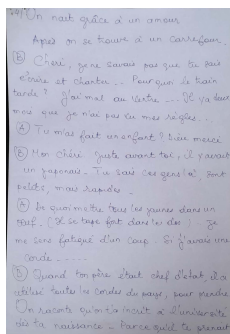 On naît grâce à un amour
Après on se trouve à un carrefour.
(B) Chéri, je ne savais pas que tu sais
écrire et chanter... Pourquoi le train
tarde ? J'ai mal au ventre... Il y a deux
mois que je n'ai pas eu mes règles...
(A) Tu m'as fait un enfant ? Dieu merci
(B) Mon chéri. Juste avant toi, il y avait
un japonais - Tu sais ces gens là, sont
petits, mais rapides -
(A) De quoi mettre tous les jaunes dans un
(Il se tape fort dans le dos). Je
me sens fatigué d'un coup. Si j'avais une
corde .....
(B) Quand ton père était chef d'état, il a
utilisé toutes les cordes du pays, pour pendre
On raconte qu'on t'a inscrit à l'université
dès ta naissance - Parce qu'il te prenait